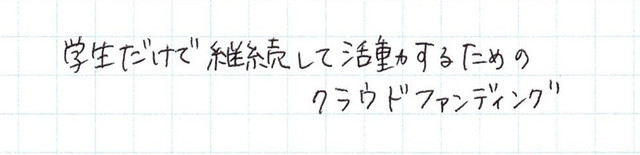 学生だけで継続して活動するための
クラウドファンディング